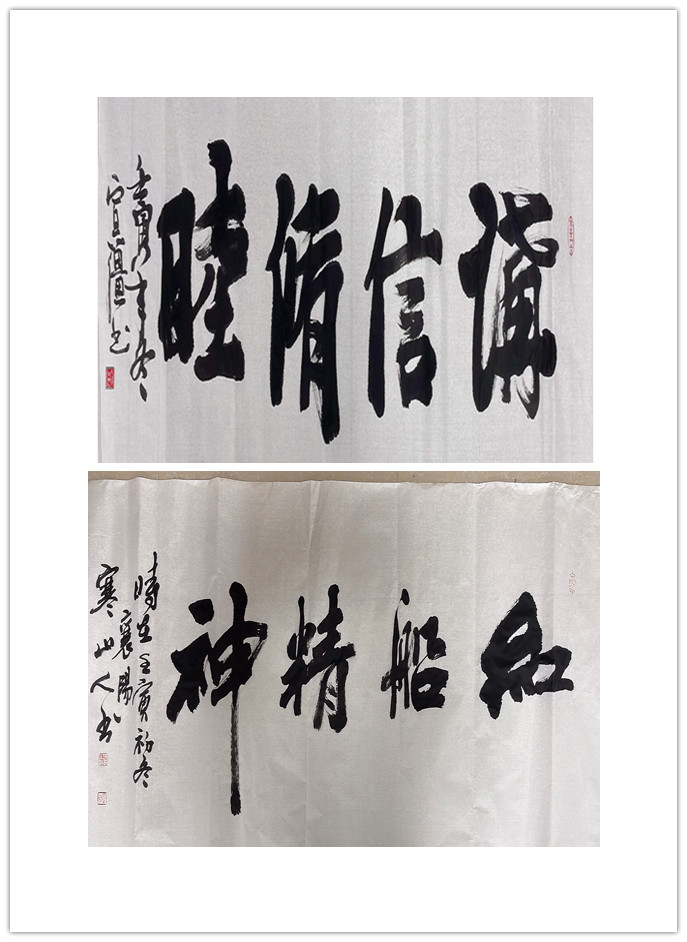 講信脩睦
壬寅之冬
書
紅船精神
時在壬寅初冬
襄陽
寒山人書